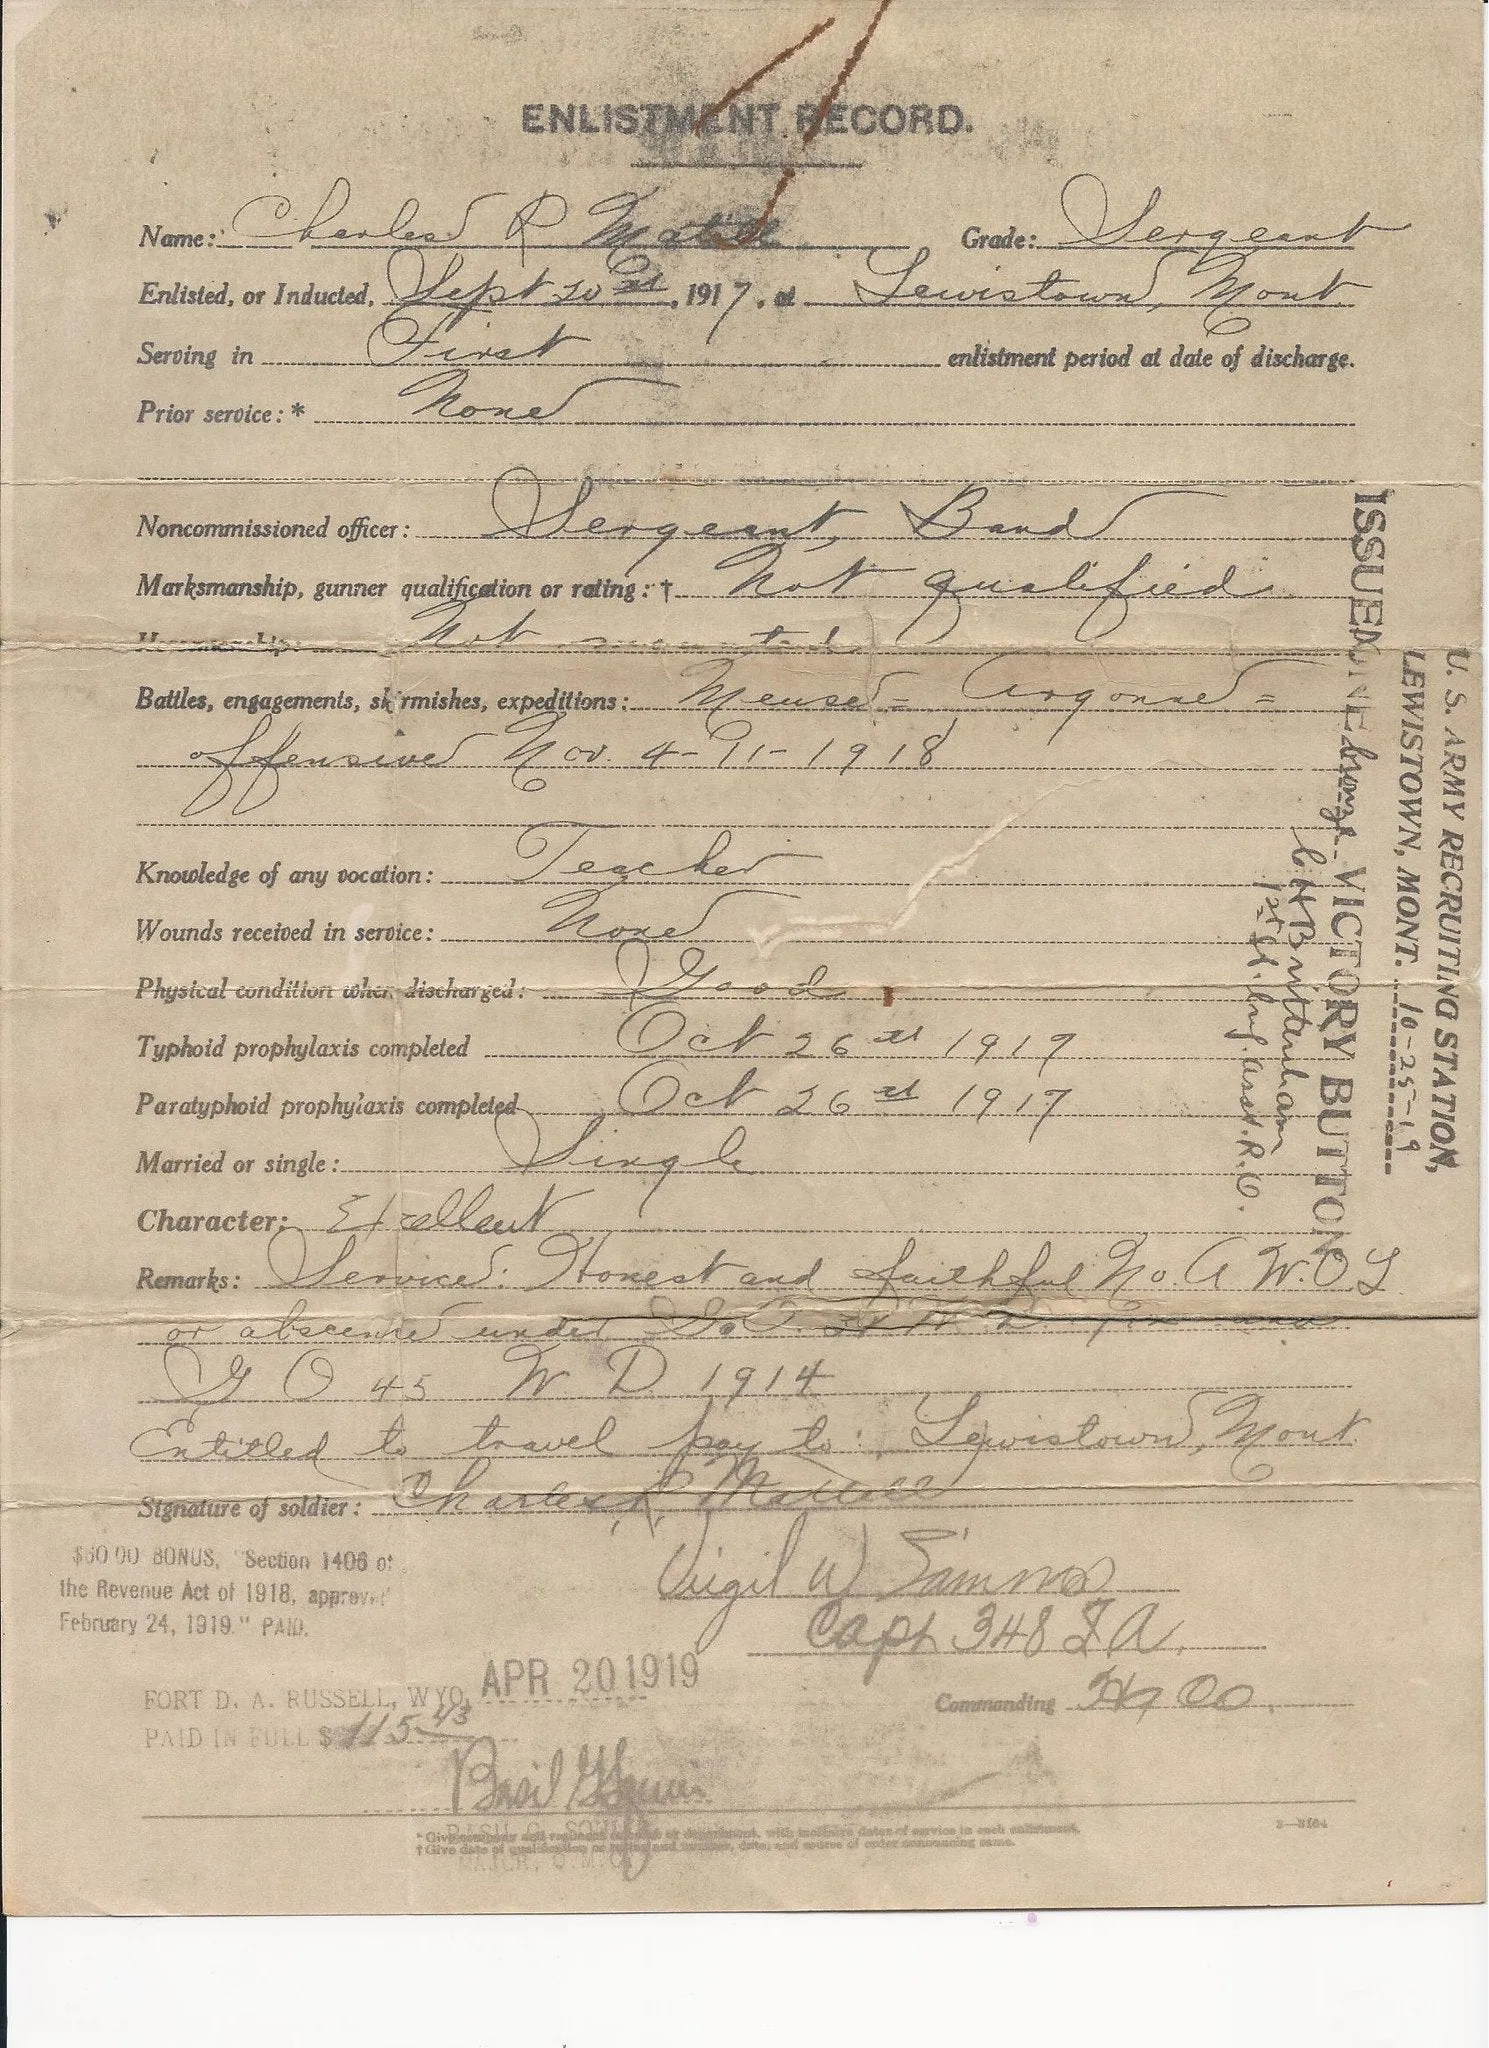 ENLISTMENT RECORD.
Name: Charles R Grade: Sergeant
Enlisted, or Inducted, Sept 20 st, 1917, at Lewistown, Mont.
Serving in First enlistment period at date of discharge.
Prior service:* None
Noncommissioned officer: Sergeant, Band
Marksmanship, gunner qualification or rating:† Not qualified
Horsemanship: Not mounted
Battles, engagements, skirmishes, expeditions: Meuse = Argonne =
offensive Nov. 4-11-1918
Knowledge of any vocation: Teacher
Wounds received in service: None
Physical condition when discharged: Good
Typhoid prophylaxis completed Oct 26 st 1917
Paratyphoid prophylaxis completed Oct 26 st 1917
Married or single: Single
Character: Excellent
Remarks: Service: Honest and faithful No. A.W.O.L
or absence under G.O. and
G O 45 W D 1914
Entitled to travel pay to: Lewistown, Mont.
Signature of soldier: Charles R.
Virgil W Simmons
Capt 348 F A.
Commanding
$60.00 BONUS, "Section 1406 of
the Revenue Act of 1918, approved
February 24, 1919." PAID.
APR 20 1919
FORT D. A. RUSSELL, WYO.
PAID IN FULL $ 115 43
Basil G
BASIL G.
MAJOR, Q.M.C.
* Give company and regiment or corps or department, with inclusive dates of service in each enlistment.
† Give date of qualification or rating and number, date, and source of order announcing same.
3—3164
U. S. ARMY RECRUITING STATION,
LEWISTOWN, MONT. 10-25-19
ISSUED ONE bronze VICTORY BUTTON
C H Brittenham
1st Lt. Inf. Asst. R.O.